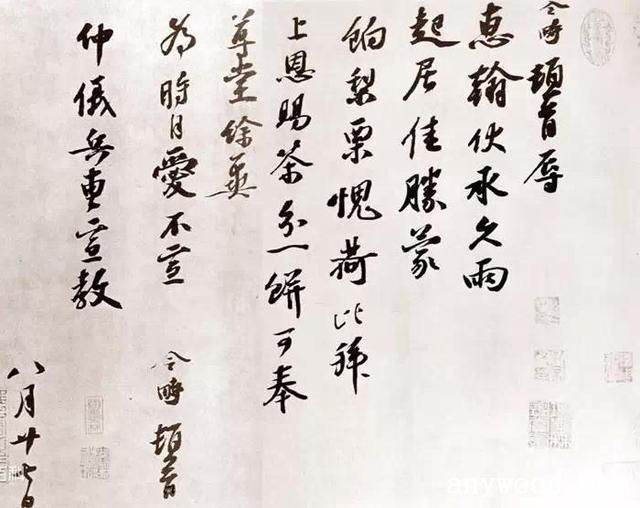 令時頓首辱
惠翰伏承久雨
起居佳勝蒙
餉梨栗愧荷比拜
上恩賜茶分一餅可奉
尊堂餘冀
為時自愛不宣
令時頓首
仲儀兵曹宣教
八月廿七日
anywood.com